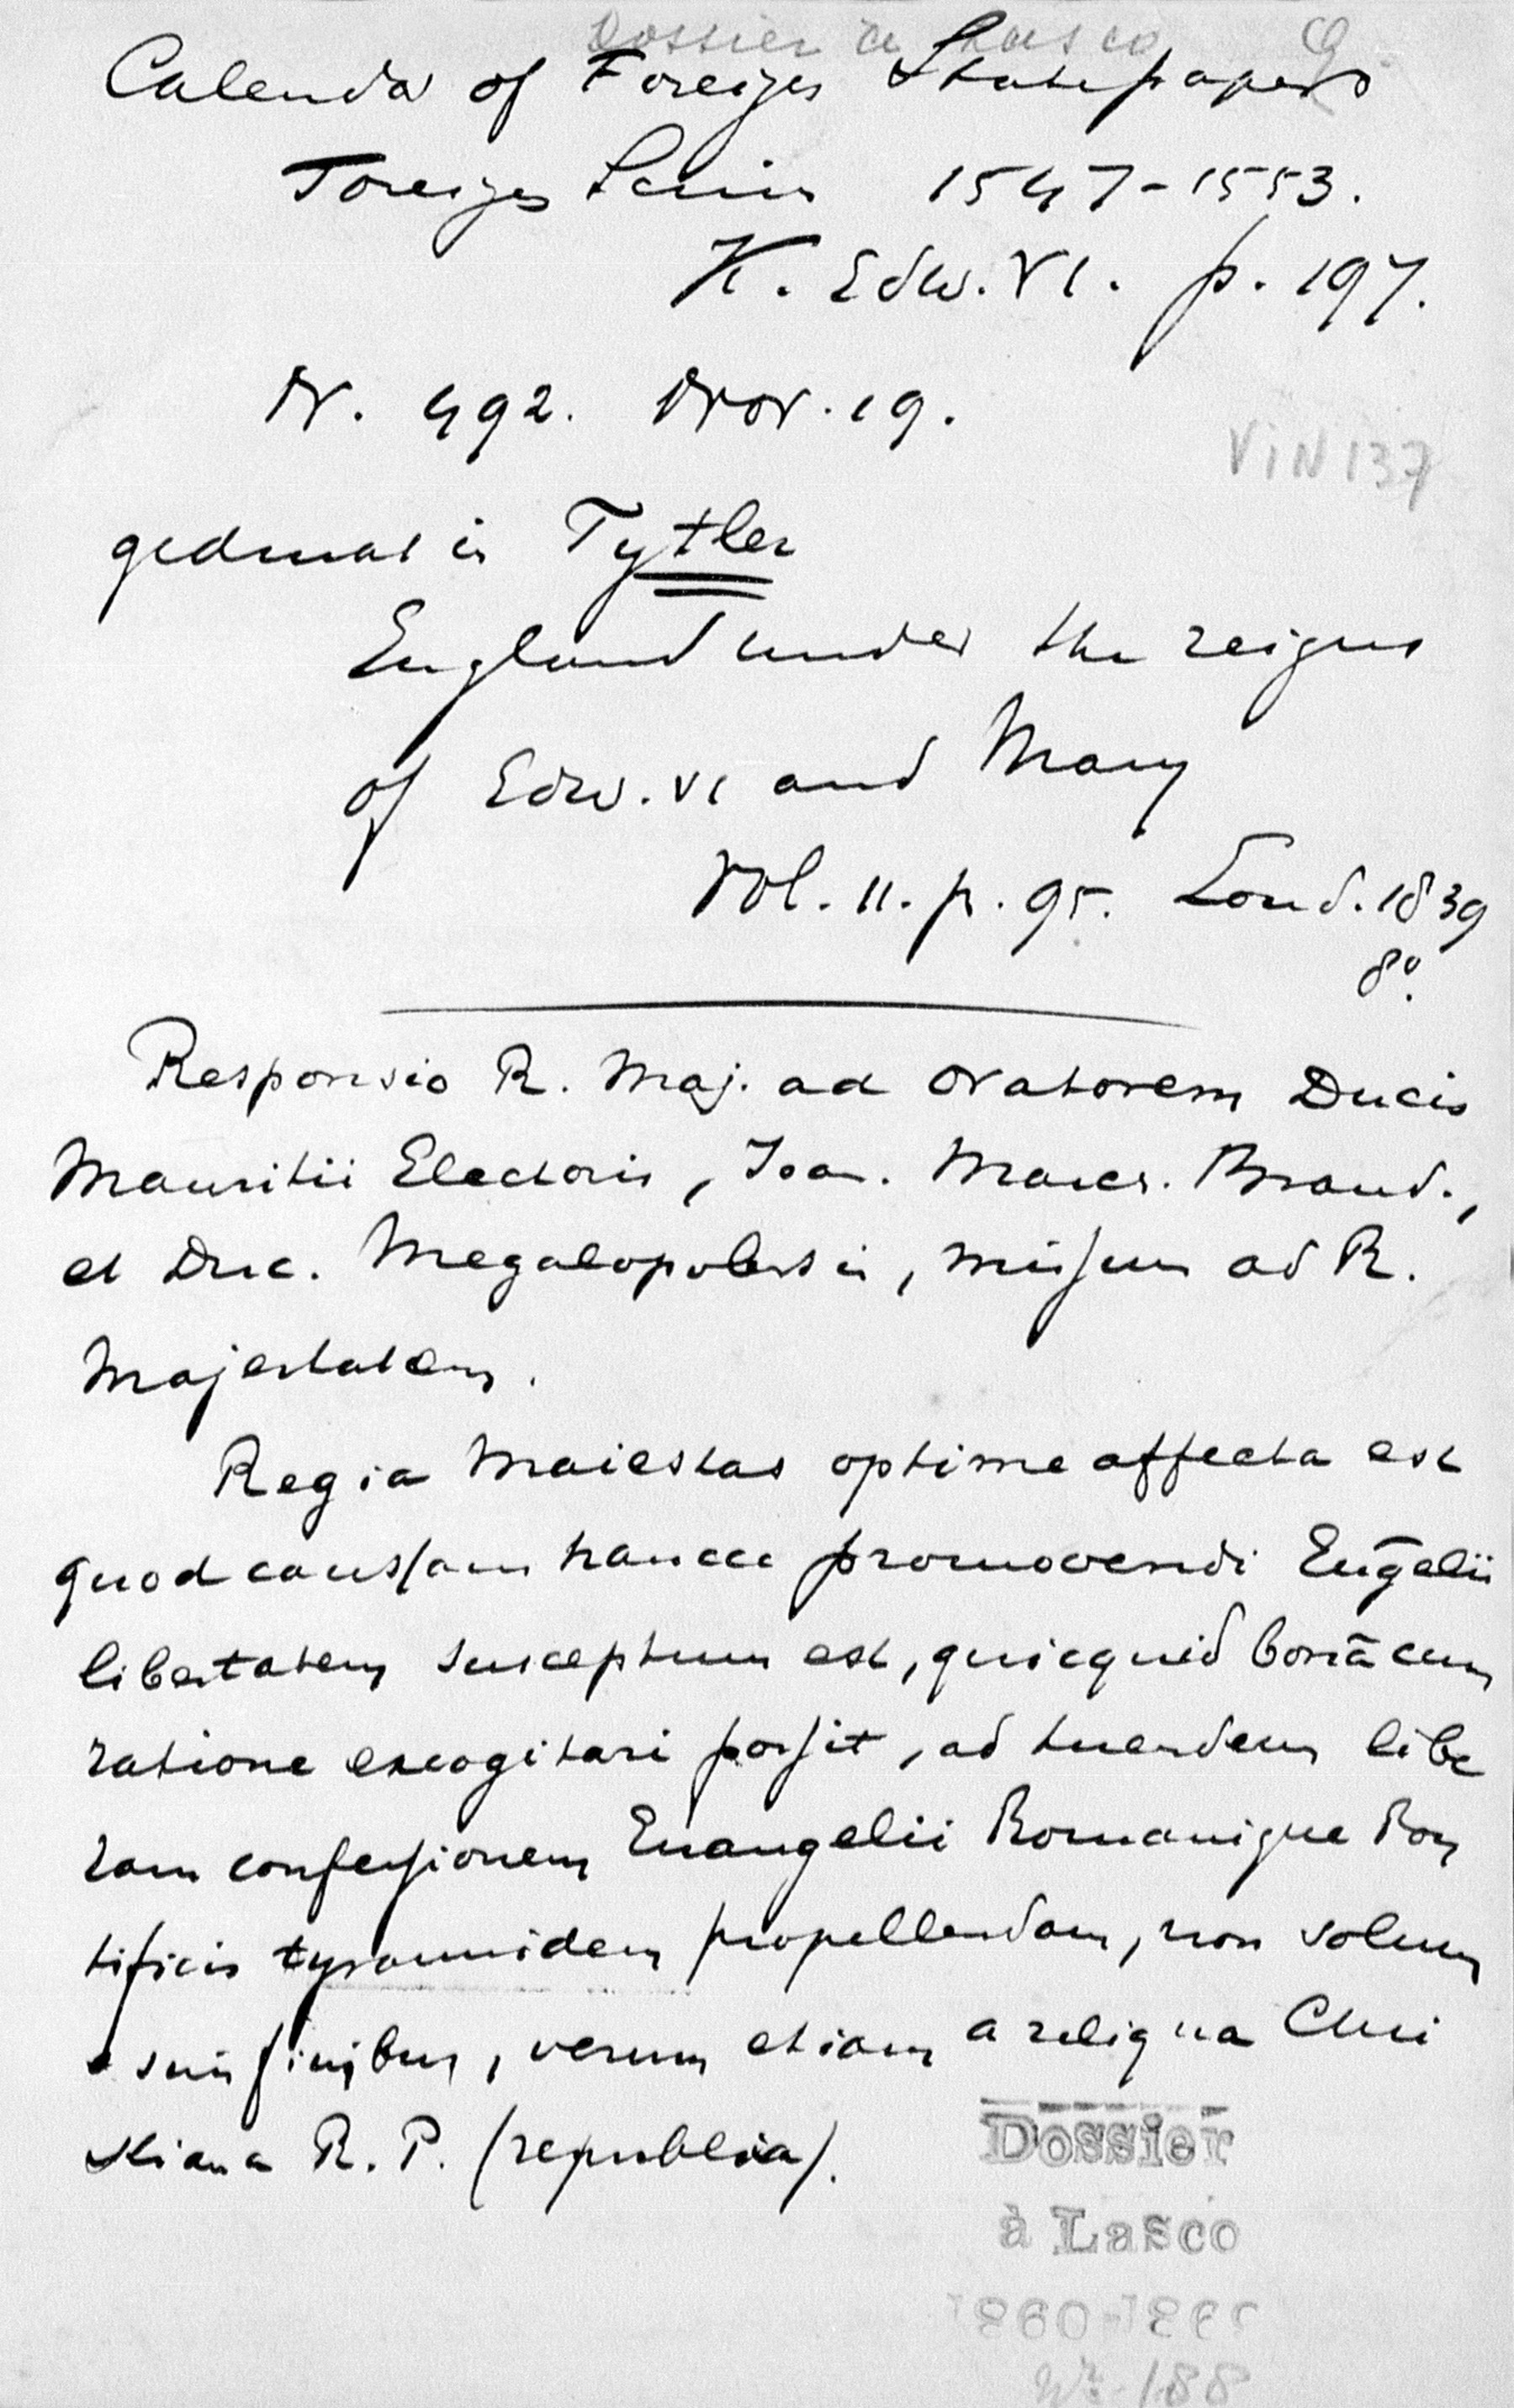 Dossier a Lasco
Calendar of Foreign Statepapers
Foreign Series 1547-1553.
K. Edw. VI. p. 197.
N. 492. Nov. 19.
VIN 137
gedruckt in Tytler
England under the reigns
of Edw. VI and Mary
Vol. II. p. 95. Lond. 1839
8º.
Responsio R. Maj. ad oratorem Ducis
Mauritii Electoris, Joan. March. Brand.,
et Duc. Megalopolensis, missum ad R.
Majestatem.
Regia Maiestas optime affecta est
quod caussam hancce promovendi Euāgelii
libertatem susceptum est, quicquid bonā cum
ratione excogitari possit, ad tuendem libe
ram confessionem Euangelii Romanique Pon
tificis tyrannidem propellendam, non solum
e suis finibus, verum etiam a reliqua Chri
stiana R. P. (republica).
Dossier
à Lasco
1860-1865
Nr. 188